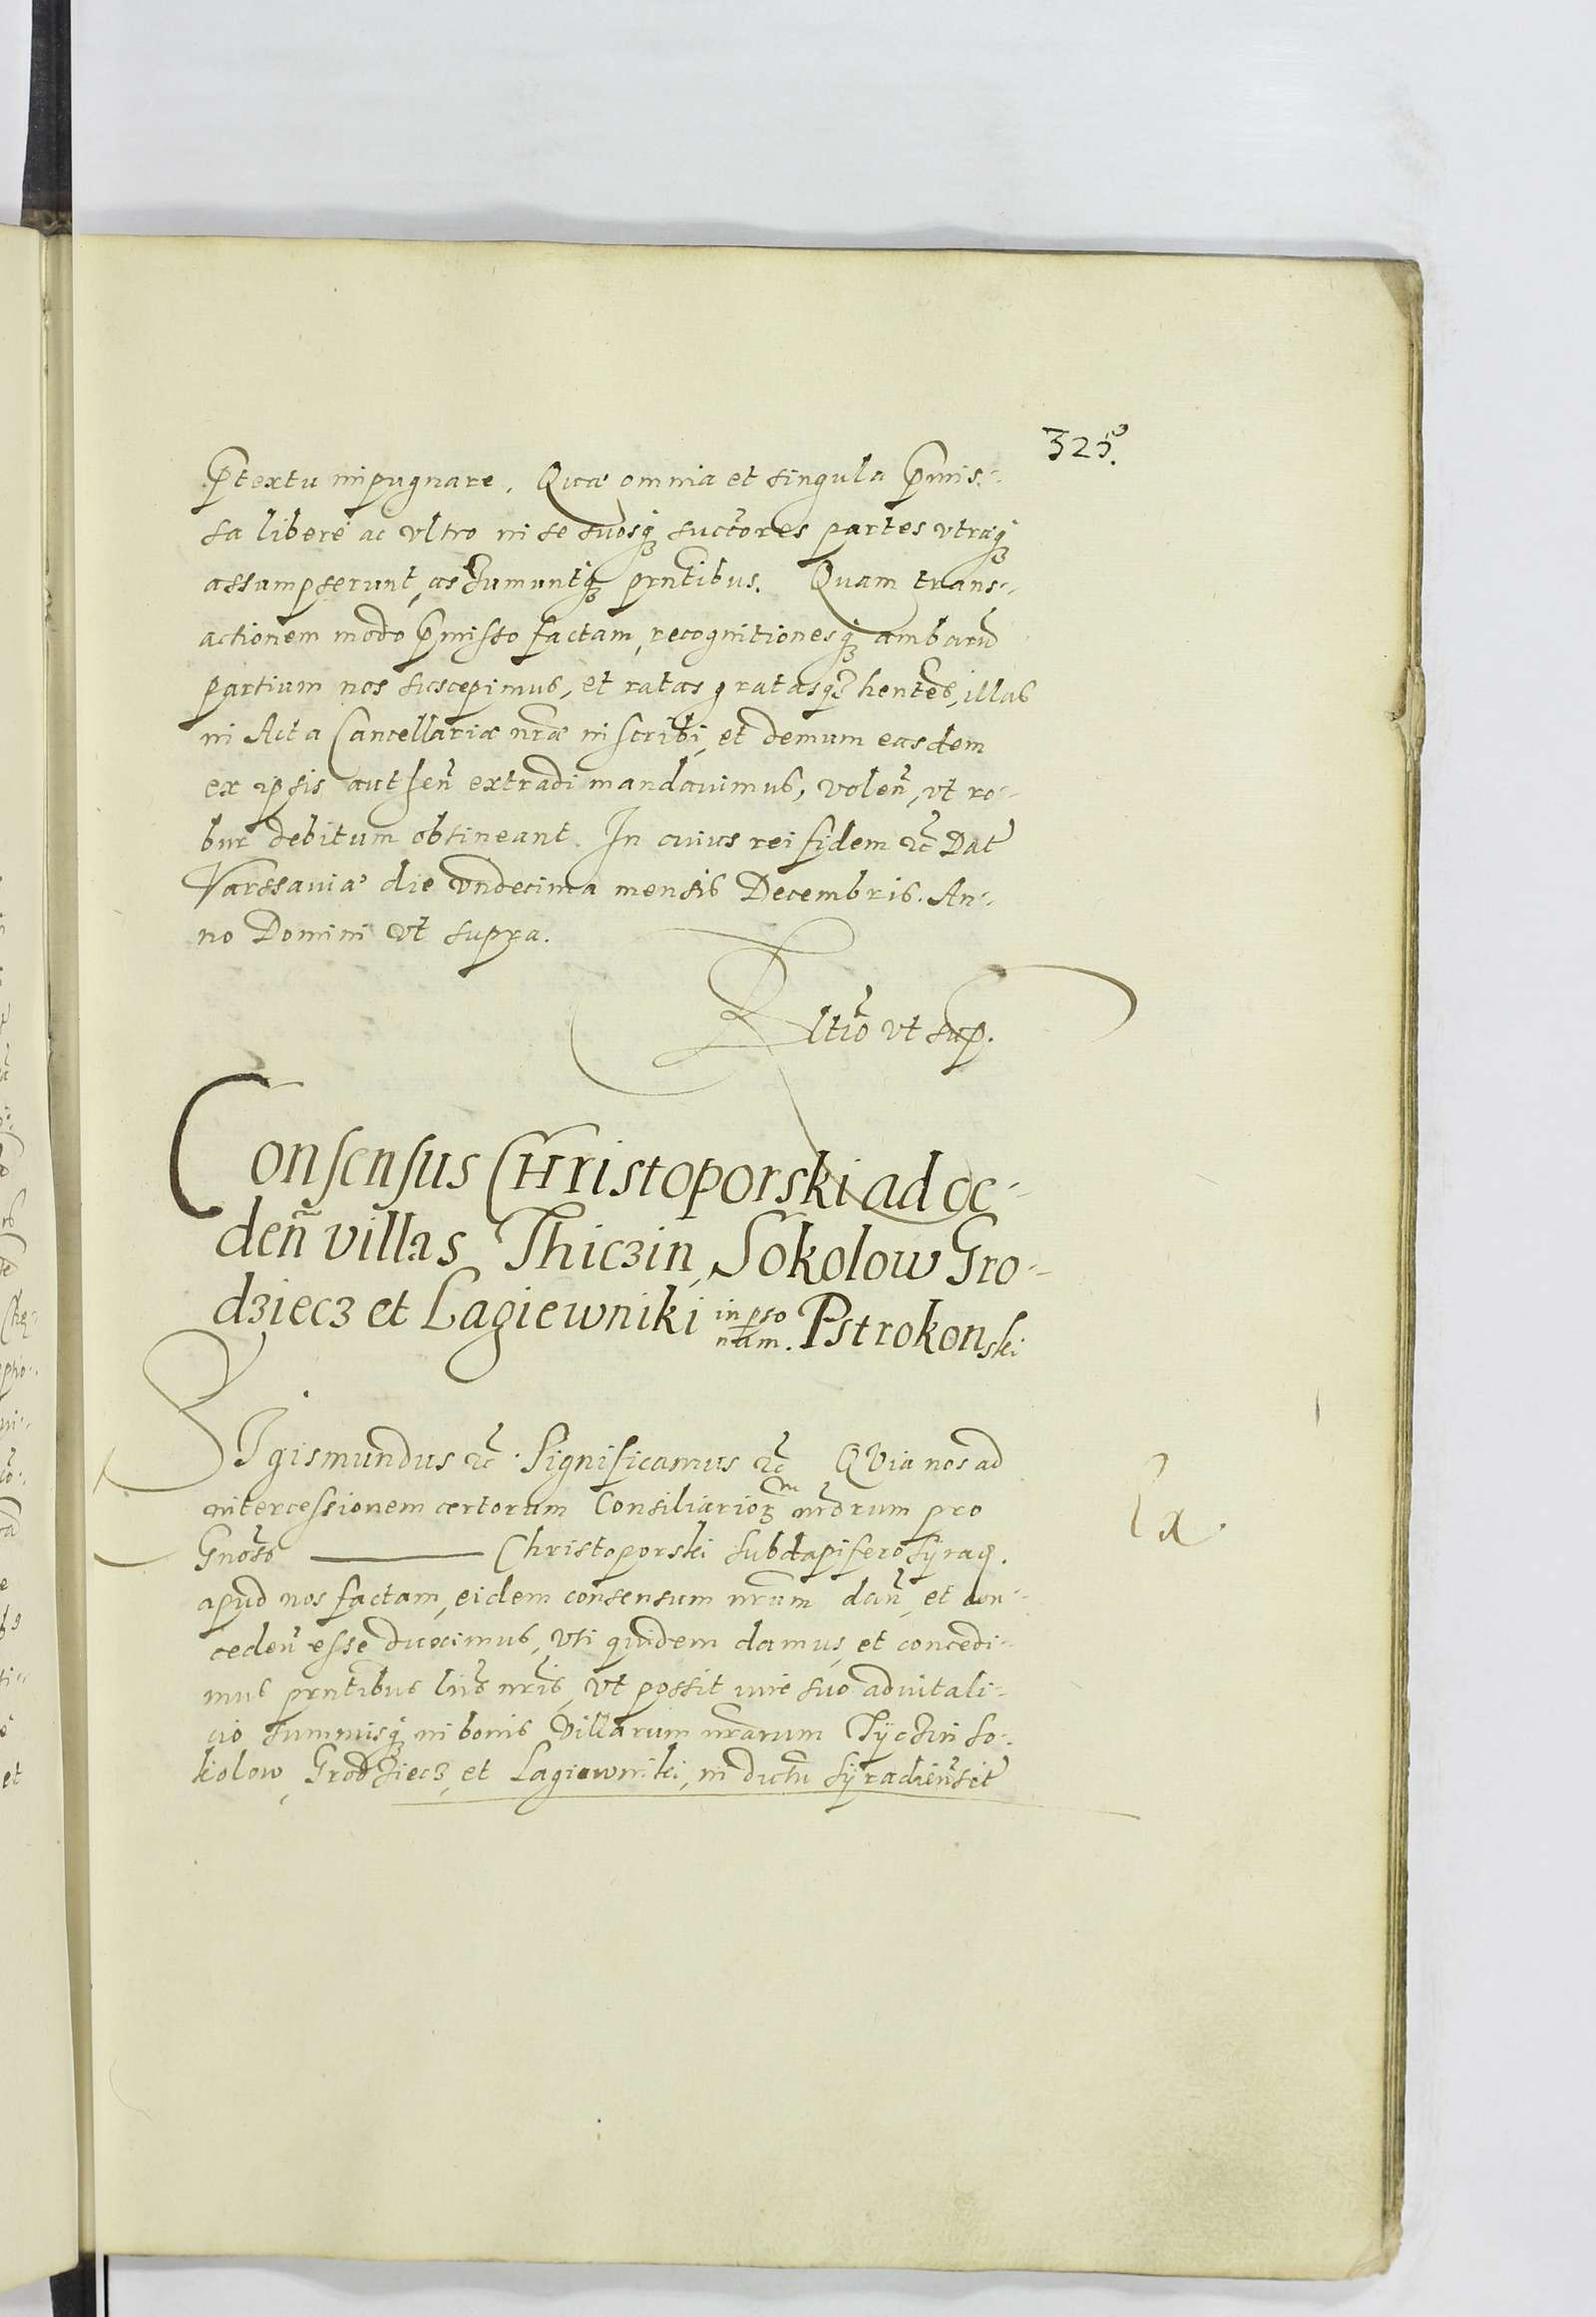 325.
p̃textu inpugnare. Quæ omnia et singula p̃mis-
sa liberè ac vltro in se suosq; suctores partes vtraq;
assumpserunt, assumuntq; prntibus. Quam trans-
actionem modo p̃misso factam, recognitionesq; ambarũ
partium nos suscepimus, et ratas gratasq; hentes, illas
in Acta Cancellariæ nræ inscribi, et demum easdem
ex ipsis authen̄ extradi mandauimus, volen̄, vt ro-
bur debitum obtineant. In cuius rei fidem &c Dat
Varssauiæ die vndecima mensis Decembris. An-
no Domini vt supra.
Rltio vt sup.
Consensus CHristoporski ad ce-
den̄ villas Thiczin, Sokolow Gro-
dziecz et Lagiewniki in pso
nam. Pstrokonski
SIgismundus &c. Significamus &c QVia nos ad
intercessionem certorum Consiliarior; nrõrum pro
Gnõso ——— Christoporski subdapifero Syrad.
apud nos factam, eidem consensum nrum dan̄, et con-
ceden̄ esse duximus, vti quidem damus, et concedi-
mus prntibus lris nris, vt possit iure suo aduitali-
tio summisq; in bonis Villarum nrarum Tyczin So-
kolow, Grodziecz, et Lagiewniki, in distu Syradien̄ sit